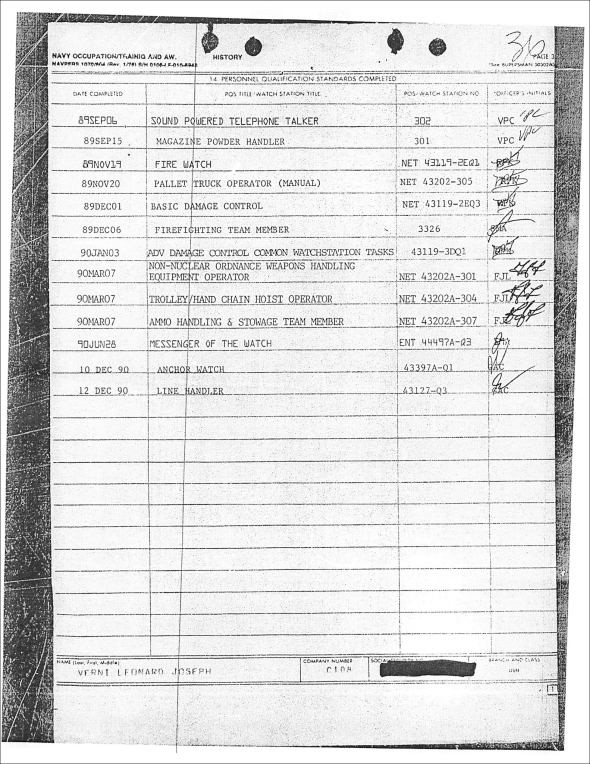 36
NAVY OCCUPATION/TRAINING AND AW. HISTORY PAGE 3
NAVPERS 1070/604 (Rev. 1/76)
14 PERSONNEL QUALIFICATION STANDARDS COMPLETED
DATE COMPLETED PQS TITLE/WATCH STATION TITLE PQS/WATCH STATION NO. *OFFICER'S INITIALS
89SEP06 SOUND POWERED TELEPHONE TALKER 302 VPC
89SEP15 MAGAZINE POWDER HANDLER 301 VPC
89NOV19 FIRE WATCH NET 43119-2EQ1
89NOV20 PALLET TRUCK OPERATOR (MANUAL) NET 43202-305
89DEC01 BASIC DAMAGE CONTROL NET 43119-2EQ3
89DEC06 FIREFIGHTING TEAM MEMBER 3326
90JAN03 ADV DAMAGE CONTROL COMMON WATCHSTATION TASKS 43119-3DQ1
NON-NUCLEAR ORDNANCE WEAPONS HANDLING
90MAR07 EQUIPMENT OPERATOR NET 43202A-301 FJL
90MAR07 TROLLEY/HAND CHAIN HOIST OPERATOR NET 43202A-304 FJL
90MAR07 AMMO HANDLING & STOWAGE TEAM MEMBER NET 43202A-307 FJL
90JUN28 MESSENGER OF THE WATCH ENT 44497A-Q3
10 DEC 90 ANCHOR WATCH 43397A-Q1
12 DEC 90 LINE HANDLER 43127-Q3
NAME (Last, First, Middle) COMPANY NUMBER BRANCH AND CLASS
VERNI LEONARD JOSEPH C108 USN